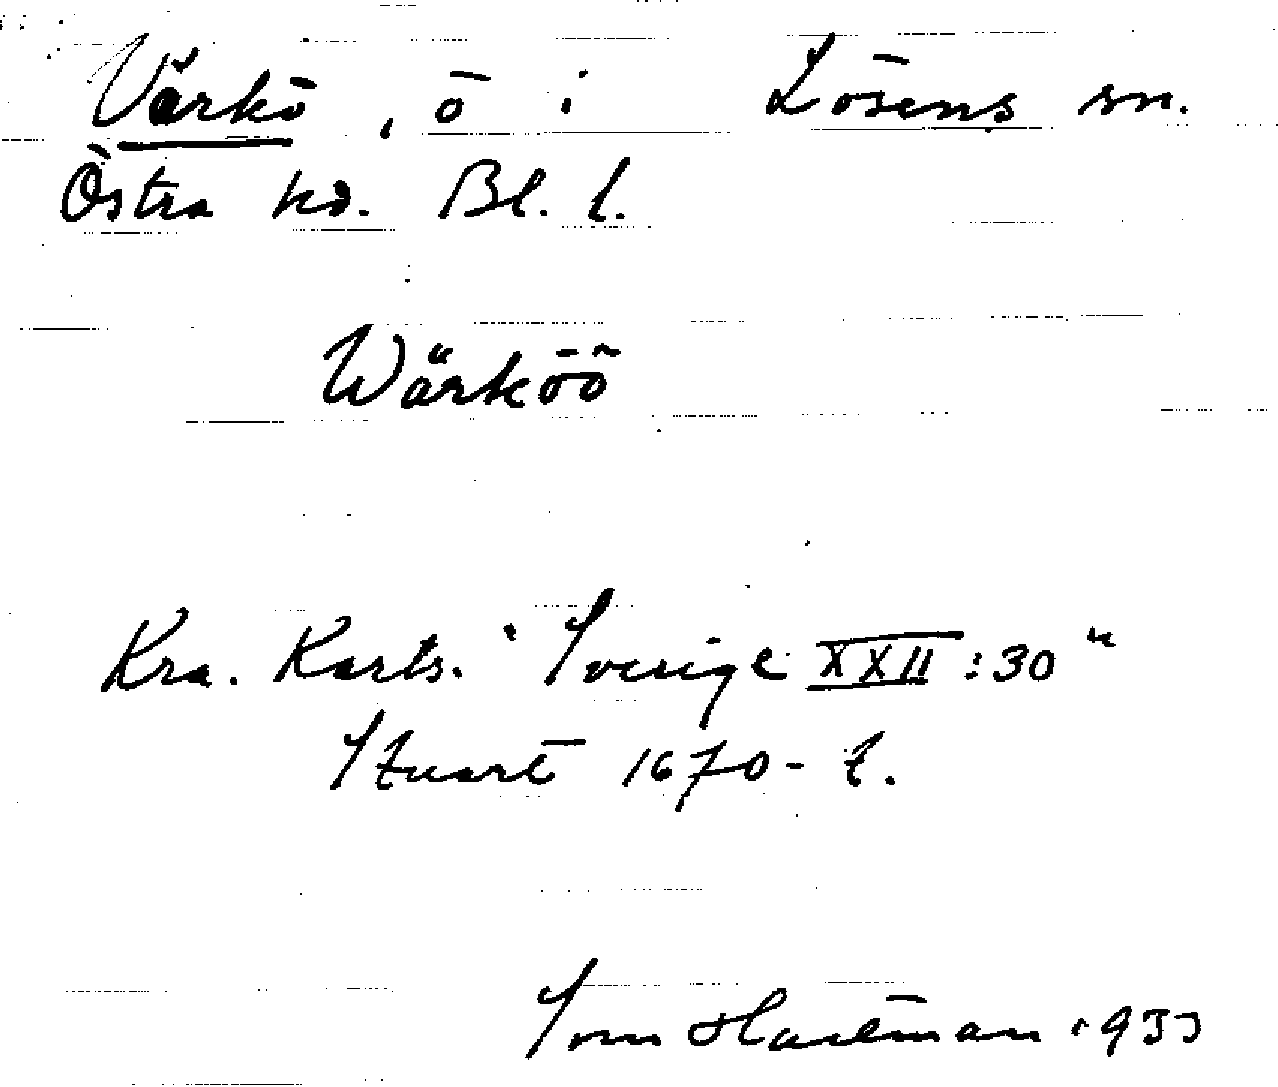 Värkö, ö i Lösens sn.
Östra hd. Bl. l.
Wärköö
Kra. Karts. "Sverige XXII:30"
Stuart 1670-t.
Hartman 1933